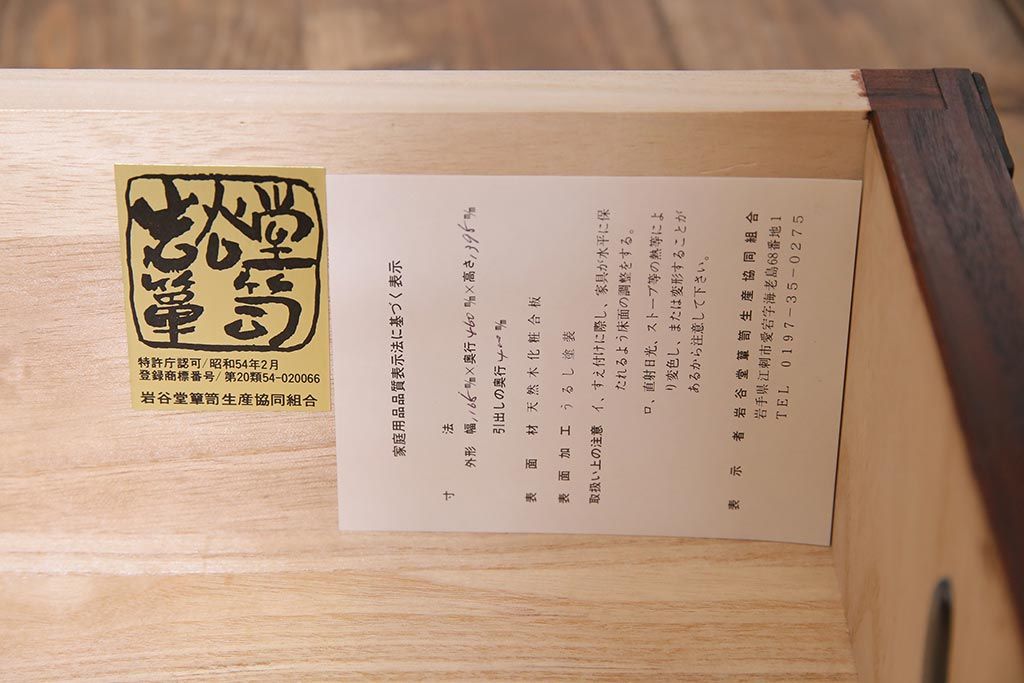 岩谷堂
簞笥
特許庁認可/昭和54年2月
登録商標番号/第20類54-020066
岩谷堂簞笥生産協同組合
家庭用品品質表示法に基づく表示
寸法
外形 幅1,165㎜×奥行460㎜×高さ1,395㎜
引出しの奥行400㎜
表面材 天然木化粧合板
表面加工 うるし塗装
取扱い上の注意 イ、すえ付けに際し、家具が水平に保
たれるよう床面の調整をする。
ロ、直射日光、ストーブ等の熱等によ
り変色し、または変形することが
あるから注意して下さい。
表示者 岩谷堂簞笥生産協同組合
岩手県江刺市愛宕字海老島68番地1
TEL 0197-35-0275